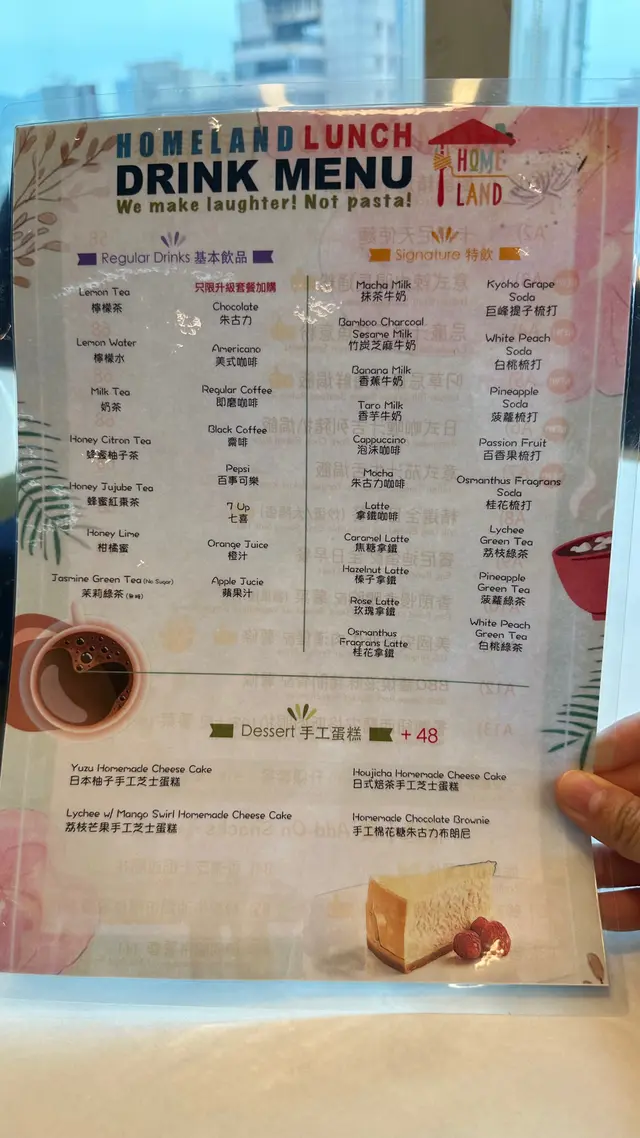 HOMELAND LUNCH
DRINK MENU
We make laughter! Not pasta!
HOME
LAND
Regular Drinks 基本飲品
Lemon Tea
檸檬茶
Lemon Water
檸檬水
Milk Tea
奶茶
Honey Citron Tea
蜂蜜柚子茶
Honey Jujube Tea
蜂蜜紅棗茶
Honey Lime
柑橘蜜
Jasmine Green Tea (No Sugar)
茉莉綠茶 (無糖)
只限升級套餐加購
Chocolate
朱古力
Americano
美式咖啡
Regular Coffee
即磨咖啡
Black Coffee
齋啡
Pepsi
百事可樂
7 Up
七喜
Orange Juice
橙汁
Apple Jucie
蘋果汁
Signature 特飲
Macha Milk
抹茶牛奶
Bamboo Charcoal
Sesame Milk
竹炭芝麻牛奶
Banana Milk
香蕉牛奶
Taro Milk
香芋牛奶
Cappuccino
泡沫咖啡
Mocha
朱古力咖啡
Latte
拿鐵咖啡
Caramel Latte
焦糖拿鐵
Hazelnut Latte
榛子拿鐵
Rose Latte
玫瑰拿鐵
Osmanthus
Fragrans Latte
桂花拿鐵
Kyoho Grape
Soda
巨峰提子梳打
White Peach
Soda
白桃梳打
Pineapple
Soda
菠蘿梳打
Passion Fruit
百香果梳打
Osmanthus Fragrans
Soda
桂花梳打
Lychee
Green Tea
荔枝綠茶
Pineapple
Green Tea
菠蘿綠茶
White Peach
Green Tea
白桃綠茶
Dessert 手工蛋糕 + 48
Yuzu Homemade Cheese Cake
日本柚子手工芝士蛋糕
Lychee w/ Mango Swirl Homemade Cheese Cake
荔枝芒果手工芝士蛋糕
Houjicha Homemade Cheese Cake
日式焙茶手工芝士蛋糕
Homemade Chocolate Brownie
手工棉花糖朱古力布朗尼